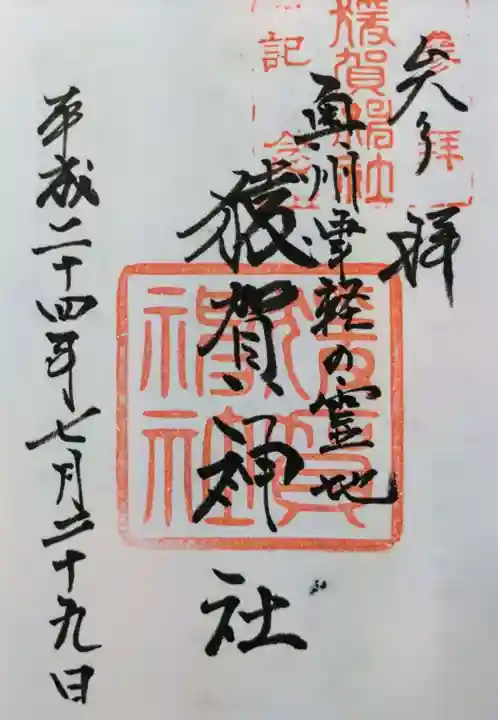 参拝
奥州津軽の霊地
猿賀神社
平成二十四年七月二十九日
参拝
猿賀神社
記念